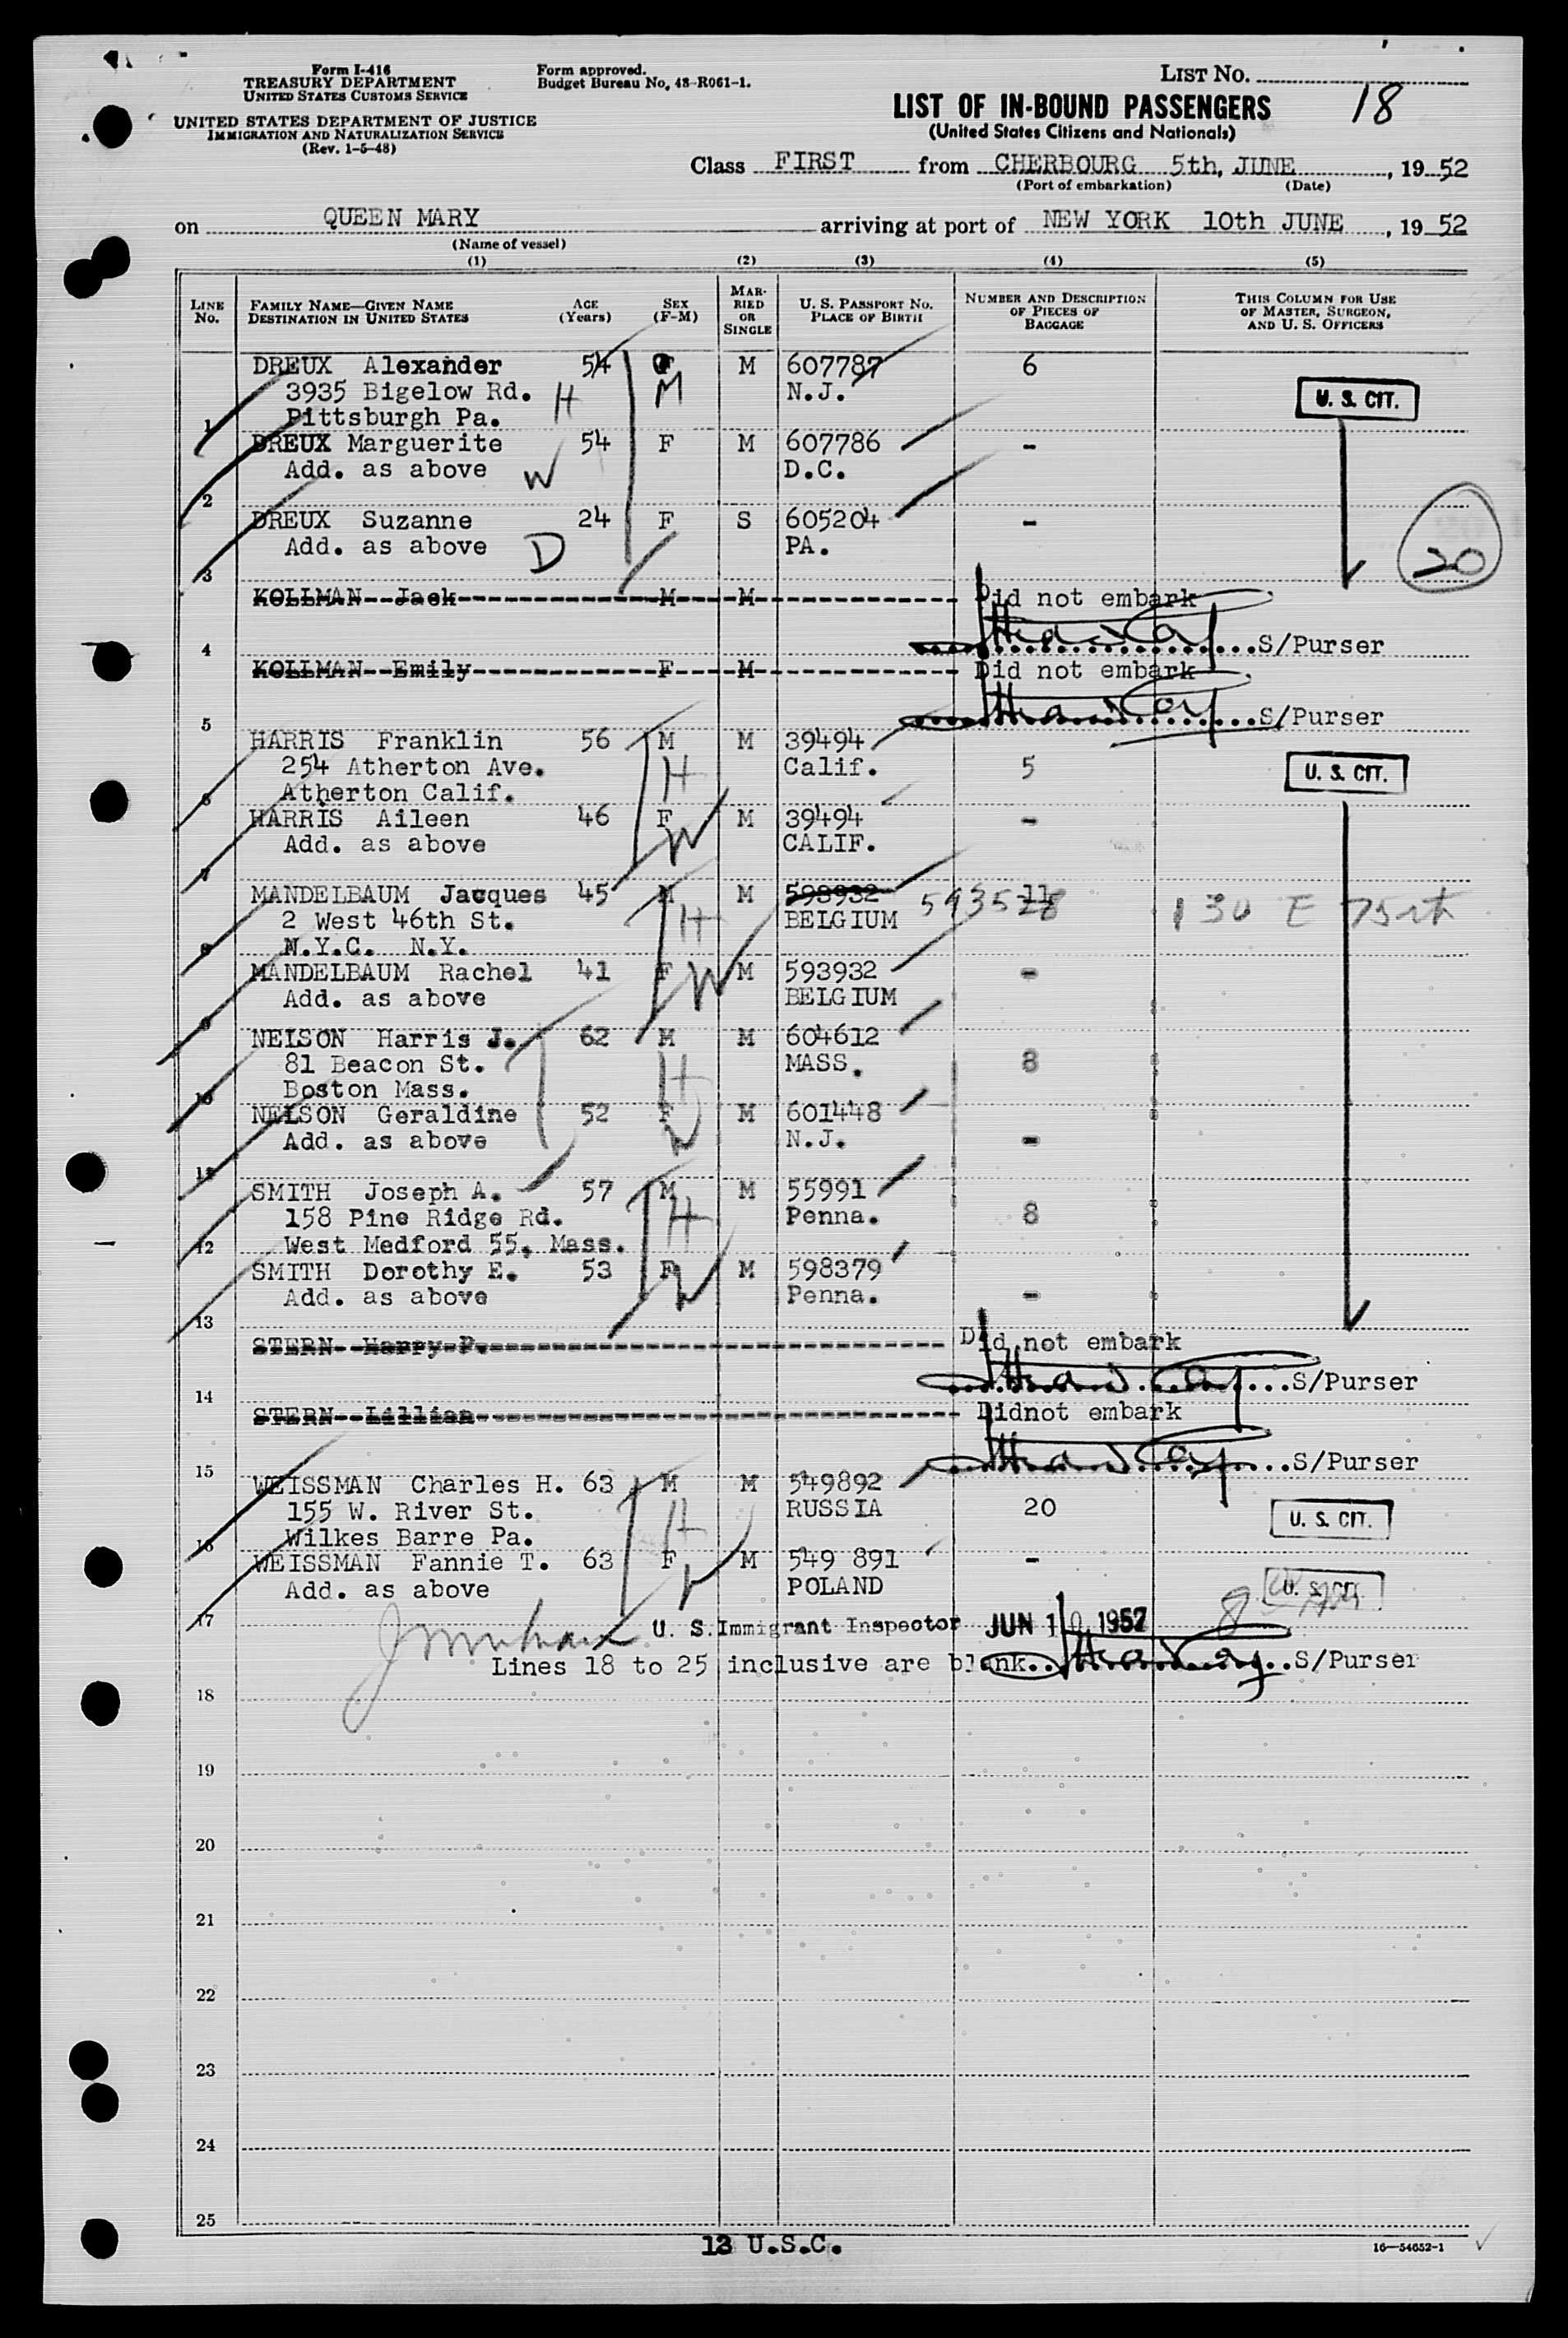 Form I-416
TREASURY DEPARTMENT
UNITED STATES CUSTOMS SERVICE
UNITED STATES DEPARTMENT OF JUSTICE
IMMIGRATION AND NATURALIZATION SERVICE
(Rev. 1-5-48)
Form approved.
Budget Bureau No. 43-R061-1.
LIST NO.
18
LIST OF IN-BOUND PASSENGERS
(United States Citizens and Nationals)
Class FIRST from CHERBOURG 5th, JUNE, 19 52
(Port of embarkation) (Date)
on QUEEN MARY arriving at port of NEW YORK 10th JUNE, 19 52
(Name of vessel)
(1) (2) (3) (4) (5)
LINE NO.
FAMILY NAME—GIVEN NAME
DESTINATION IN UNITED STATES
AGE (Years)
SEX (F-M)
MARRIED OR SINGLE
U. S. PASSPORT NO.
PLACE OF BIRTH
NUMBER AND DESCRIPTION OF PIECES OF BAGGAGE
THIS COLUMN FOR USE OF MASTER, SURGEON, AND U. S. OFFICERS
DREUX Alexander 54 F M 607787 6
3935 Bigelow Rd. H M N.J. U. S. CIT.
1 Pittsburgh Pa.
DREUX Marguerite 54 F M 607786 -
Add. as above W D.C.
2
DREUX Suzanne 24 F S 605204 -
Add. as above D PA. 20
3
KOLLMAN Jack M M Did not embark
4 S/Purser
KOLLMAN Emily F M Did not embark
5 S/Purser
HARRIS Franklin 56 M M 39494
254 Atherton Ave. H Calif. 5 U. S. CIT.
6 Atherton Calif.
HARRIS Aileen 46 F M 39494 -
Add. as above W CALIF.
7
MANDELBAUM Jacques 45 M M 598932 11
2 West 46th St. H BELGIUM 593528 130 E 75th
8 N.Y.C. N.Y.
MANDELBAUM Rachel 41 F W M 593932 -
Add. as above BELGIUM
9
NELSON Harris J. 62 M M 604612
81 Beacon St. H MASS. 8
10 Boston Mass.
NELSON Geraldine 52 F M 601448
Add. as above W N.J. -
11
SMITH Joseph A. 57 M M 55991
158 Pine Ridge Rd. H Penna. 8
12 West Medford 55, Mass.
SMITH Dorothy E. 53 F M 598379
Add. as above W Penna. -
13
STERN Harry P. Did not embark
14 S/Purser
STERN Lillian Didnot embark
15 S/Purser
WEISSMAN Charles H. 63 M M 549892
155 W. River St. H RUSSIA 20 U. S. CIT.
16 Wilkes Barre Pa.
WEISSMAN Fannie T. 63 F M 549 891 -
Add. as above W POLAND U. S. CIT.
17 U. S. Immigrant Inspector JUN 10 1952 8
Lines 18 to 25 inclusive are blank. S/Purser
18
19
20
21
22
23
24
25
13 U.S.C.
16—54652-1